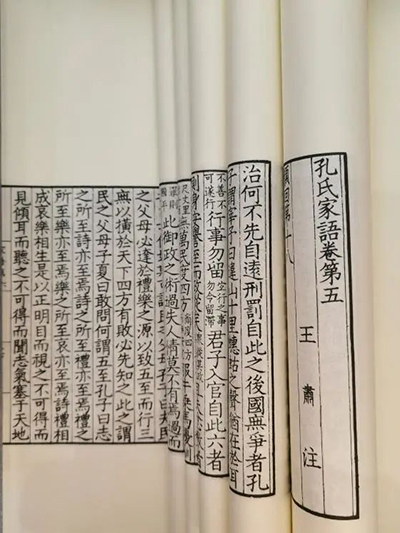 孔氏家語卷第五
王肅注
顏回第十八
治何不先自遠刑罰自此之後國無爭者孔
子謂宰予曰違山十里蟪蛄之聲猶在於耳
不善不可遂行行事勿留宜行之事勿令留滯君子入官自此六者
此御政之術過失人情莫不有焉過而
之父母必達於禮樂之源以致五至而行三
無以橫於天下四方有敗必先知之此之謂
民之父母子夏曰敢問何謂五至孔子曰志
之所至詩亦至焉詩之所至禮亦至焉禮之
所至樂亦至焉樂之所至哀亦至焉詩禮相
成哀樂相生是以正明目而視之不可得而
見傾耳而聽之不可得而聞志氣塞于天地